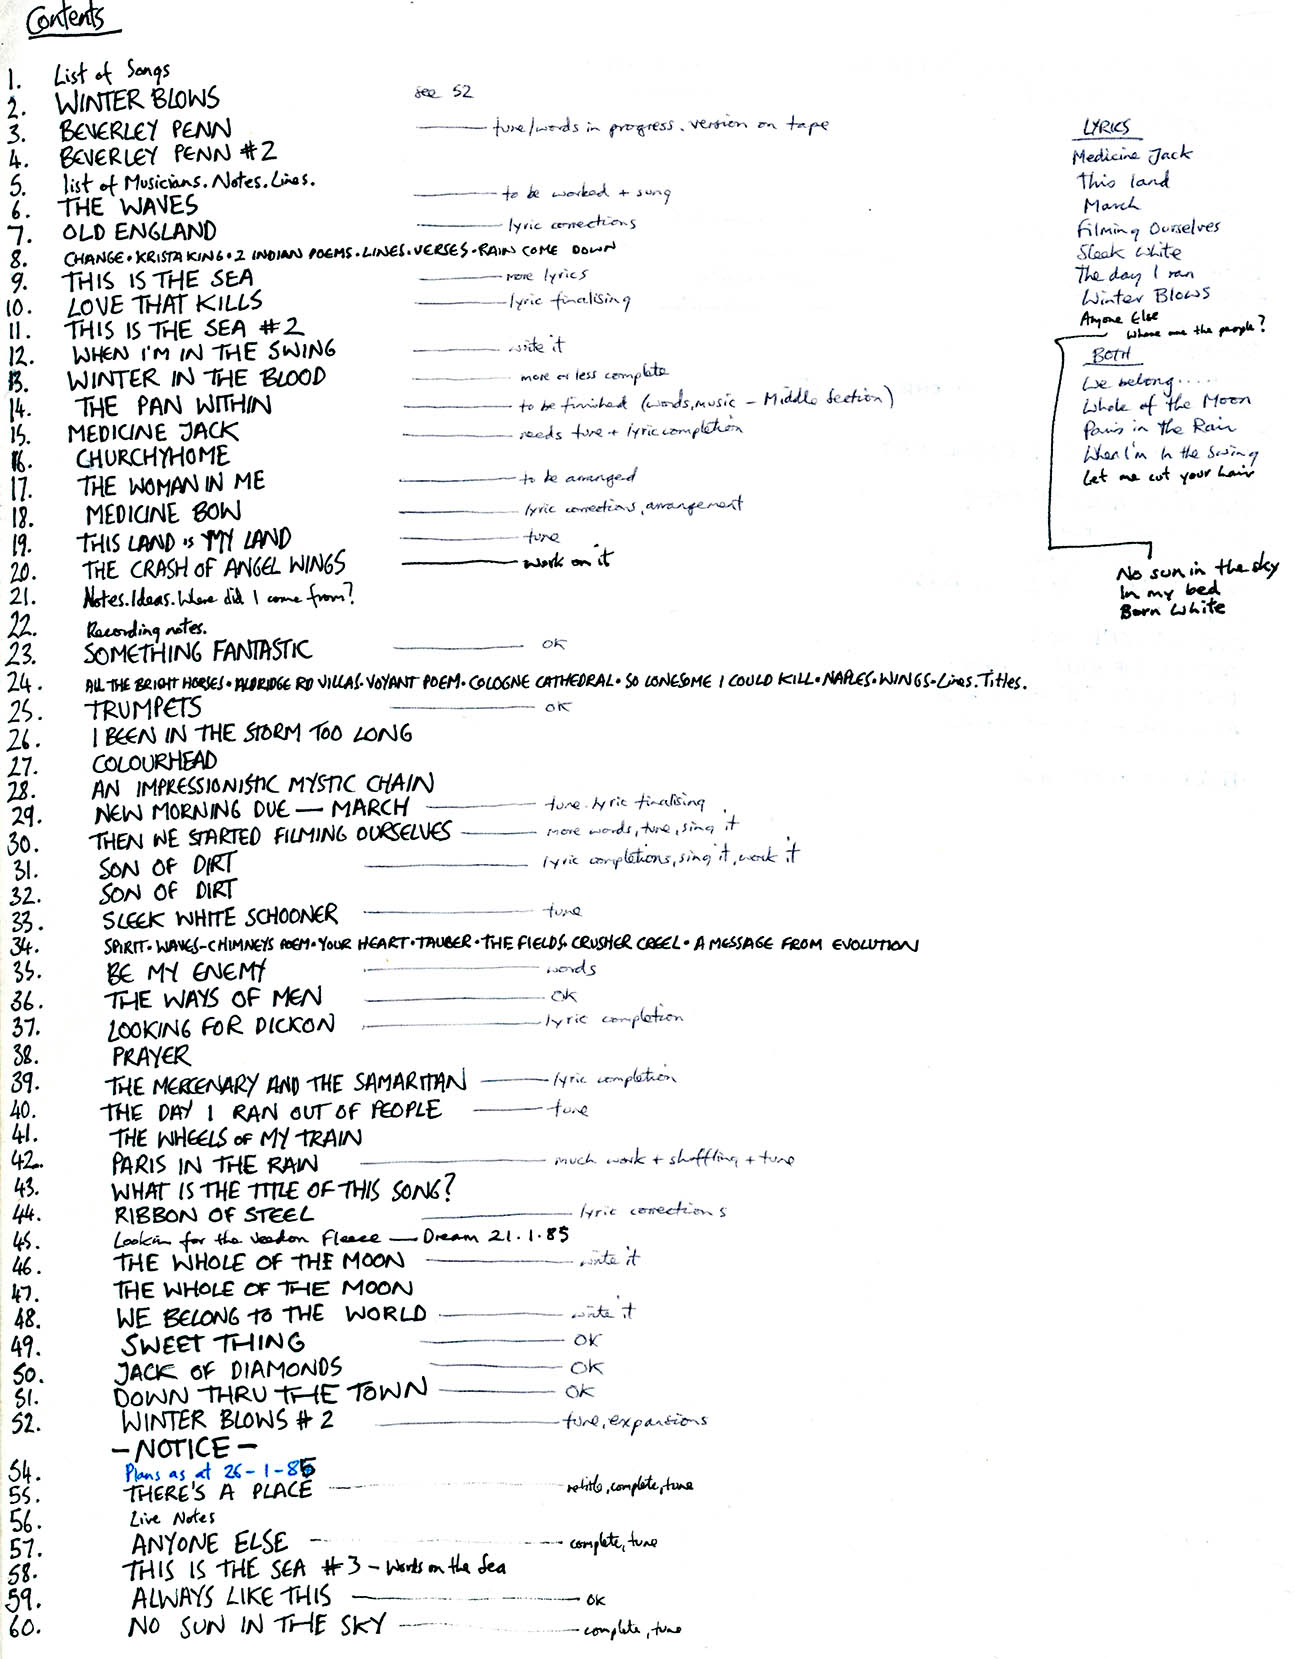 Contents
1. List of Songs
2. WINTER BLOWS see 52
3. BEVERLEY PENN — tune/words in progress. version on tape
4. BEVERLEY PENN #2
5. list of Musicians. Notes. Lines.
6. THE WAVES — to be worked + sung
7. OLD ENGLAND — lyric corrections
8. CHANGE • KRISTA KING • 2 INDIAN POEMS • LINES • VERSES • RAIN COME DOWN
9. THIS IS THE SEA — more lyrics
10. LOVE THAT KILLS — lyric finalising
11. THIS IS THE SEA #2
12. WHEN I'M IN THE SWING — write it
13. WINTER IN THE BLOOD — more or less complete
14. THE PAN WITHIN — to be finished (words, music – Middle Section)
15. MEDICINE JACK — needs tune + lyric completion
16. CHURCHYHOME
17. THE WOMAN IN ME — to be arranged
18. MEDICINE BOW — lyric corrections, arrangement
19. THIS LAND IS MY LAND — tune
20. THE CRASH OF ANGEL WINGS — work on it
21. Notes. Ideas. Where did I come from?
22. Recording notes.
23. SOMETHING FANTASTIC — OK
24. ALL THE BRIGHT HORSES • ALDRIDGE RD VILLAS • VOYANT POEM • COLOGNE CATHEDRAL • SO LONESOME I COULD KILL • NAPLES • WINGS • Lines. Titles.
25. TRUMPETS — OK
26. I BEEN IN THE STORM TOO LONG
27. COLOURHEAD
28. AN IMPRESSIONISTIC MYSTIC CHAIN
29. NEW MORNING DUE — MARCH — tune. lyric finalising
30. THEN WE STARTED FILMING OURSELVES — more words, tune, sing it
31. SON OF DIRT — lyric completions, sing it, work it
32. SON OF DIRT
33. SLEEK WHITE SCHOONER — tune
34. SPIRIT • WAVES – CHIMNEYS POEM • YOUR HEART • TAUBER • THE FIELDS. CRUSHER CREEL • A MESSAGE FROM EVOLUTION
35. BE MY ENEMY — words
36. THE WAYS OF MEN — OK
37. LOOKING FOR DICKON — lyric completion
38. PRAYER
39. THE MERCENARY AND THE SAMARITAN — lyric completion
40. THE DAY I RAN OUT OF PEOPLE — tune
41. THE WHEELS OF MY TRAIN
42. PARIS IN THE RAIN — much work + shuffling + tune
43. WHAT IS THE TITLE OF THIS SONG?
44. RIBBON OF STEEL — lyric corrections
45. Lookin for the Veedon Fleece — Dream 21.1.85
46. THE WHOLE OF THE MOON — write it
47. THE WHOLE OF THE MOON
48. WE BELONG TO THE WORLD — write it
49. SWEET THING — OK
50. JACK OF DIAMONDS — OK
51. DOWN THRU THE TOWN — OK
52. WINTER BLOWS #2 — tune, expansions
– NOTICE –
54. Plans as at 26-1-85
55. THERE'S A PLACE — retitle, complete, tune
56. Live Notes
57. ANYONE ELSE — complete, tune
58. THIS IS THE SEA #3 – Words on the Sea
59. ALWAYS LIKE THIS — OK
60. NO SUN IN THE SKY — complete, tune
LYRICS
Medicine Jack
This land
March
Filming Ourselves
Sleek White
The day I ran
Winter Blows
Anyone Else
Where are the people?
BOTH
We belong.....
Whole of the Moon
Paris in The Rain
When I'm In the Swing
Let me cut your hair
No sun in the sky
In my bed
Born White